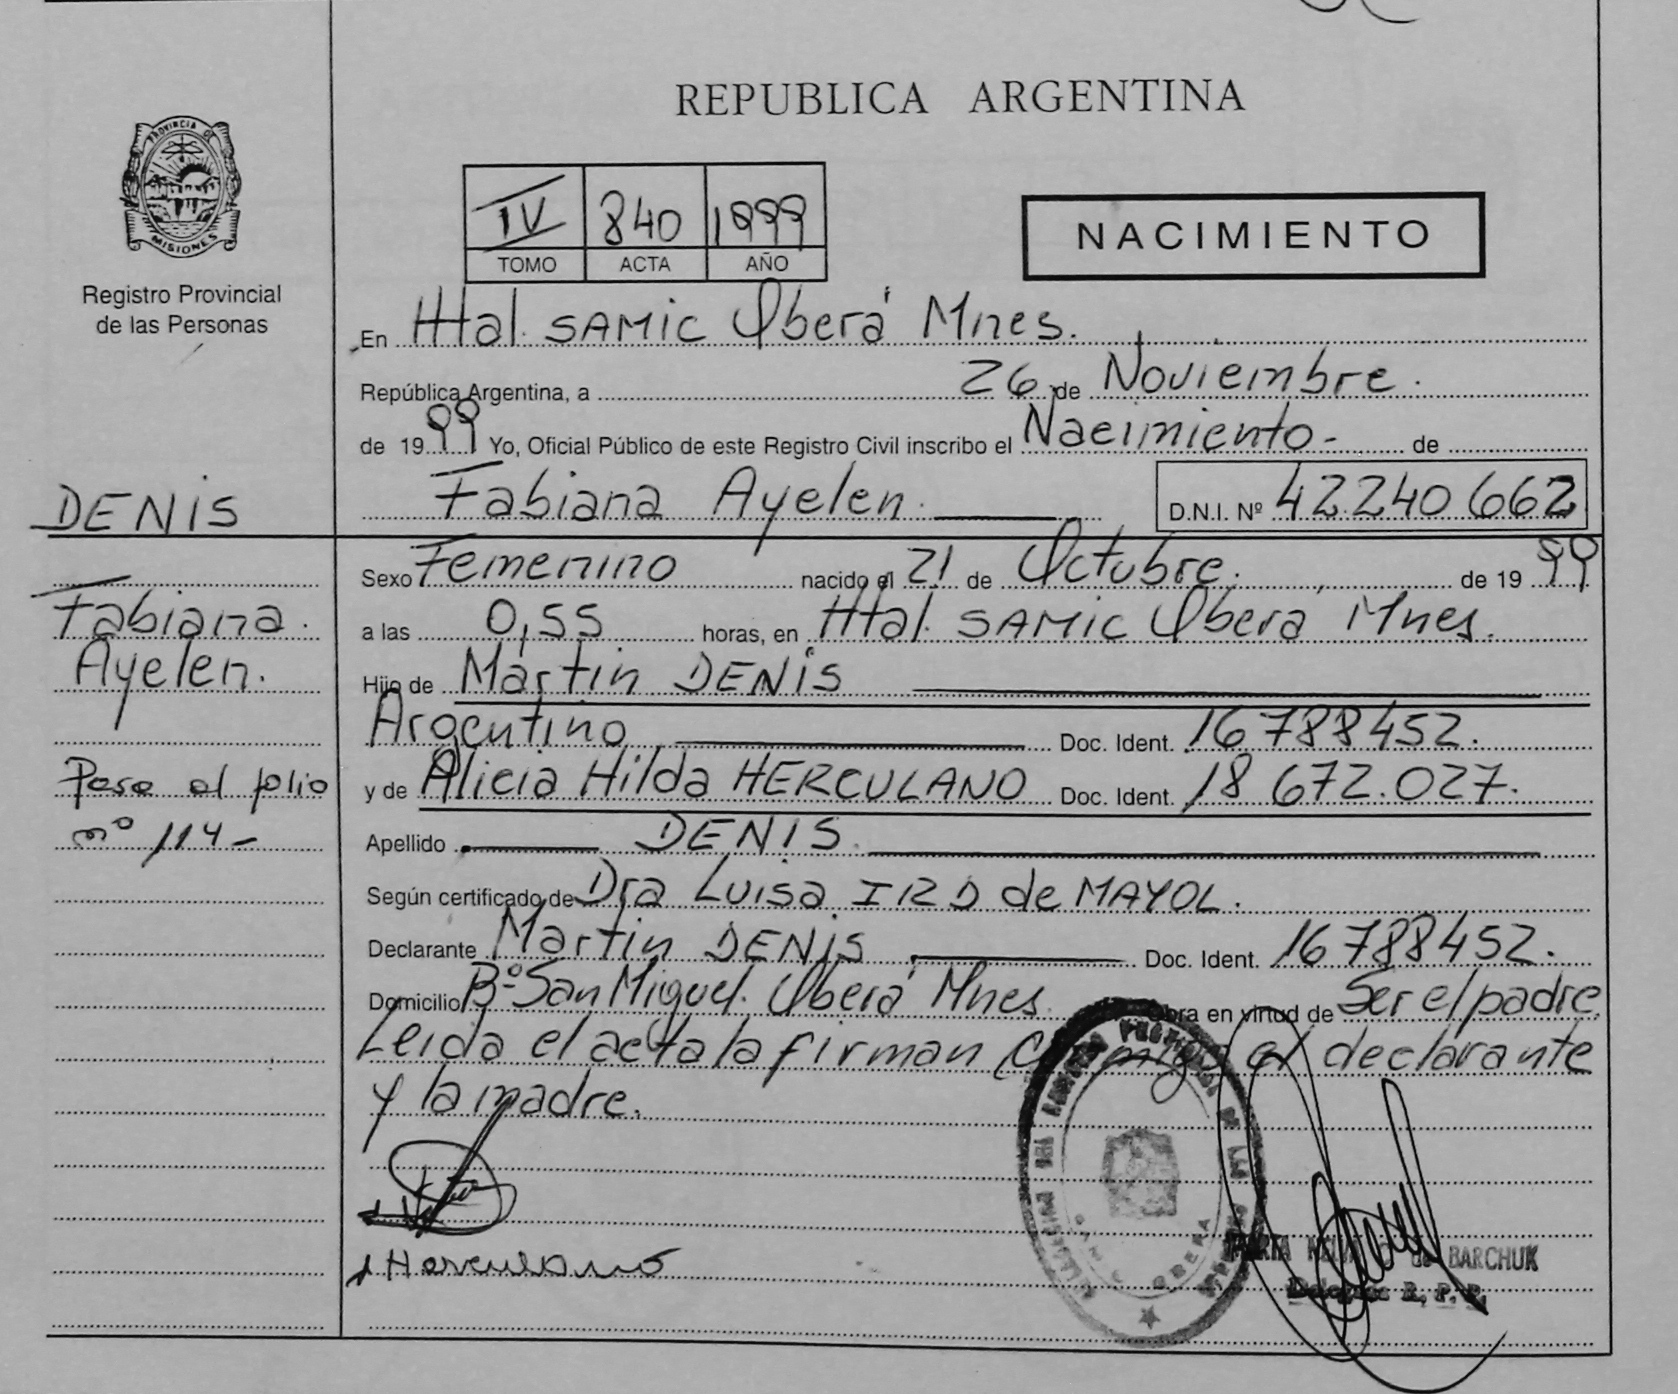 REPUBLICA ARGENTINA
PROVINCIA DE
MISIONES
Registro Provincial
de las Personas
IV 840 1999
TOMO ACTA AÑO
NACIMIENTO
En Htal. SAMIC Oberá Mnes.
República Argentina, a 26 de Noviembre.
de 1999 Yo, Oficial Público de este Registro Civil inscribo el Nacimiento- de
DENIS
Fabiana Ayelen. D.N.I. Nº 42240662
Sexo Femenino nacido el 21 de Octubre. de 1999
Fabiana.
a las 0,55 horas, en Htal. SAMIC Oberá Mnes.
Ayelen.
Hijo de Martin DENIS
Argentino Doc. Ident. 16788452.
Pase al folio
y de Alicia Hilda HERCULANO Doc. Ident. 18 672.027.
nº 114-
Apellido DENIS.
Según certificado de Dra Luisa de MAYOL.
Declarante Martin DENIS Doc. Ident. 16788452.
Domicilio Bº San Miguel. Oberá Mnes. Obra en virtud de Ser el padre.
Leida el acta la firman conmigo el declarante
y la madre.
Herculano
OBERA
BARCHUK
R. P. P.